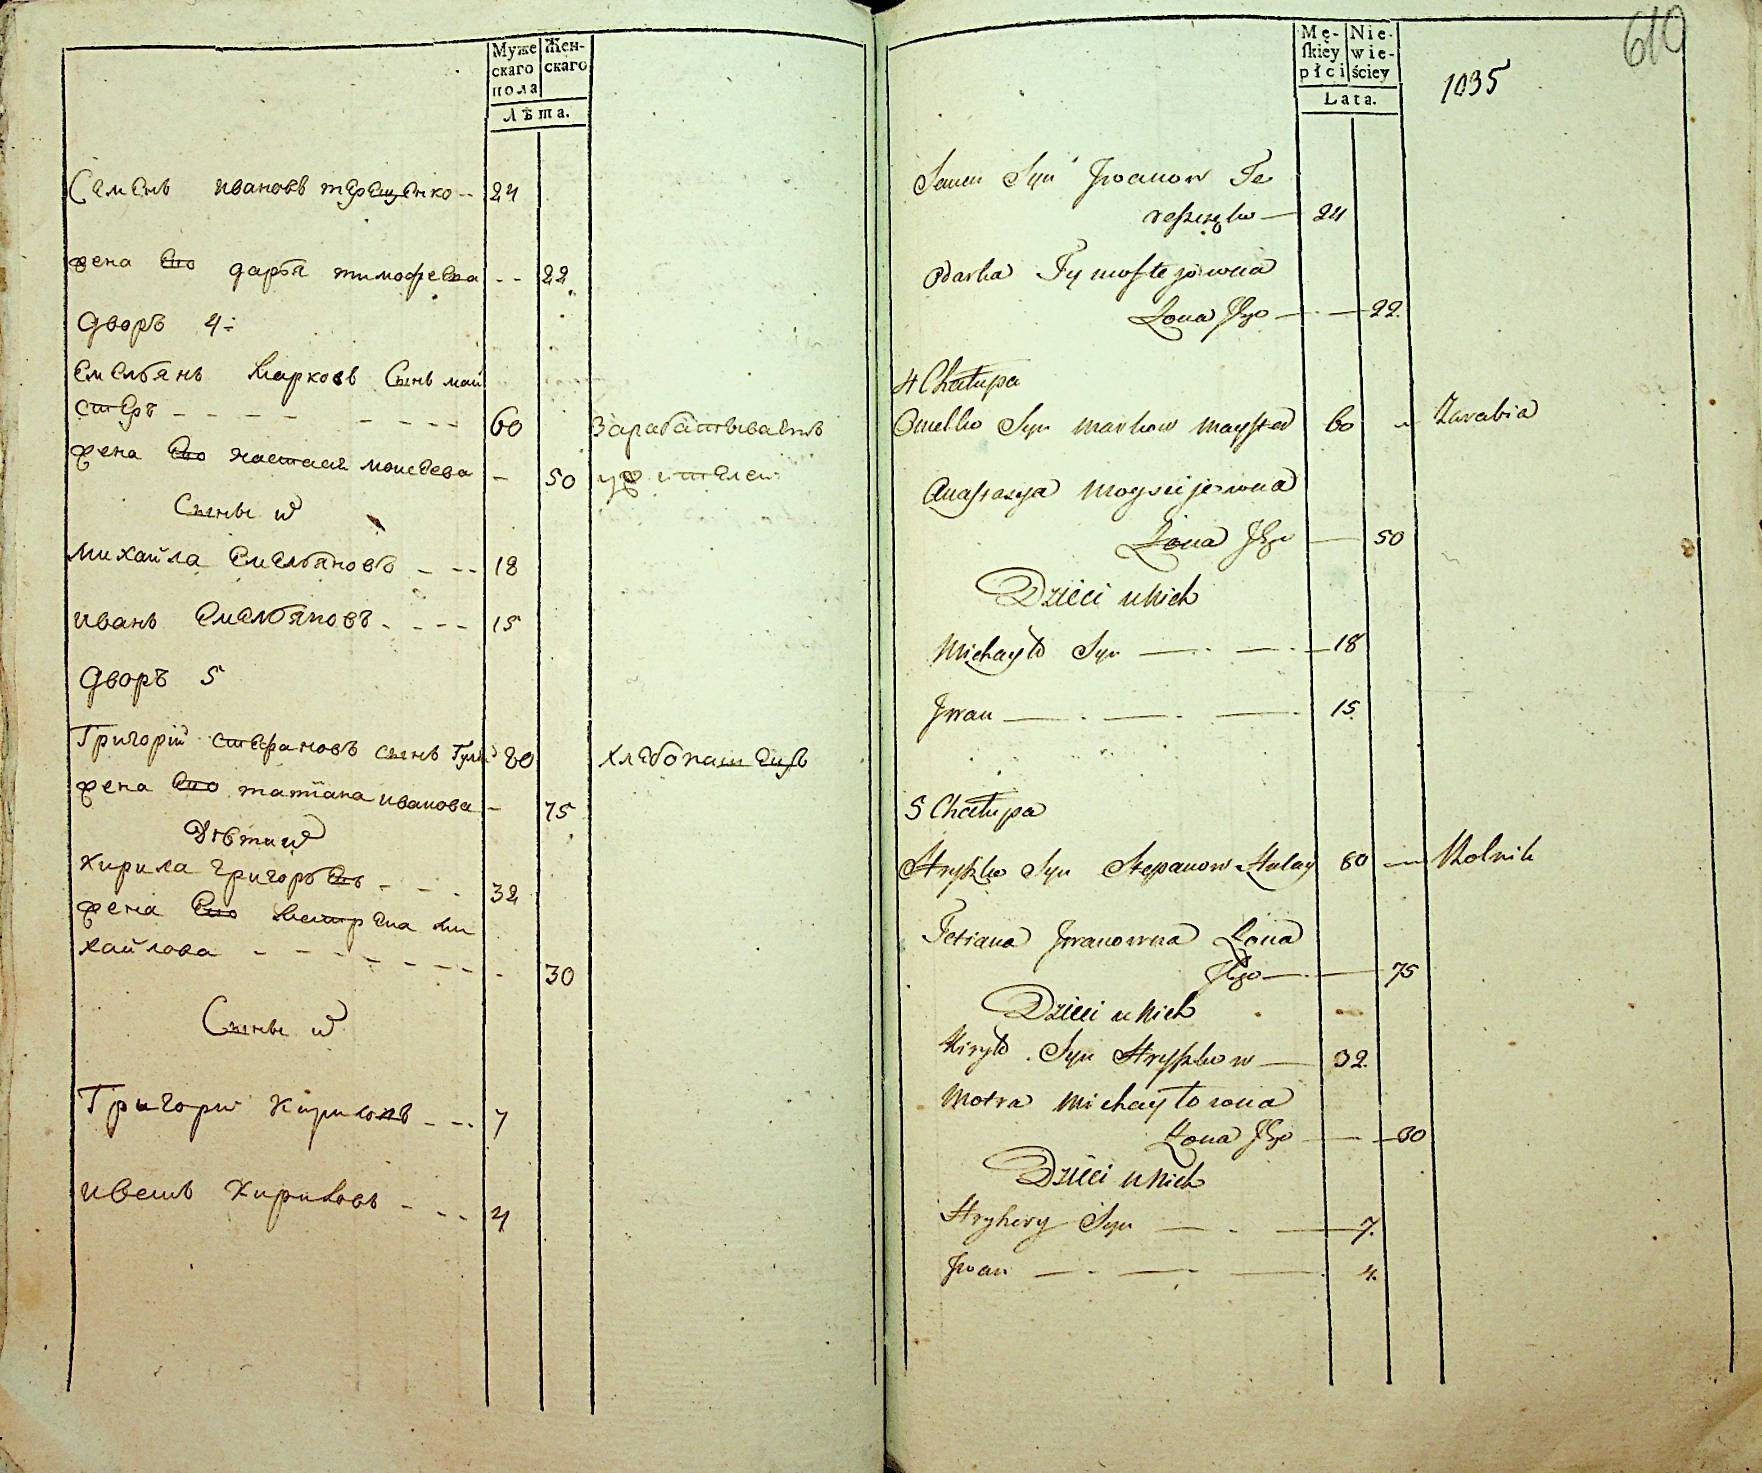 Муже
скаго
пола
Жен-
скаго
Лѣта.
Семенъ Ивановъ терещенко -- 24
жена Его дарья тимофеева -- 22
дворъ 4:
Емельянъ Марковъ Сынъ май
стеръ - - - - - - - - 60 Зарабатываетъ
жена Его настася моисеева - 50
Сыны и
михайла Емельяновъ - -- 18
иванъ Емельяновъ - - - - 15
дворъ 5
Григорій стефановъ сынъ 80 хлебопашецъ
жена Его татіана иванова - 75
Дѣти и
кирила григорьевъ - - - 32
жена Его ми
хайлова - - - - - - - - 30
Сыны и
Григори кириловъ - - - 7
иванъ кириловъ - - - 4
Mę-
ſkiey
płci
Nie-
wie-
ściey
Lata.
1035
610
Semen Syn Jwanow Te
reszczęko — 24
Odarka Tymofiejowna
Żona Jego — — 22
4 Chałupa
Omelko Syn Markow Mayster 60 - Zarabia
Anastazya Moysiejowna
Żona Jego — 50
Dzieci u Nich
Michayło Syn — . — . — 18
Jwan — . — . — 15
5 Chałupa
Hryszko Syn Stepanow Hulay 80 — Rolnik
Tetiana Jwanowna Żona
Jego — . — 75
Dzieci u Nich
Kiryło Syn Hryszkow — 32
Motra Michayłowna
Żona Jego — — 30
Dzieci u Nich
Hryhory Syn — . — 7.
Jwan — . — . — . 4.